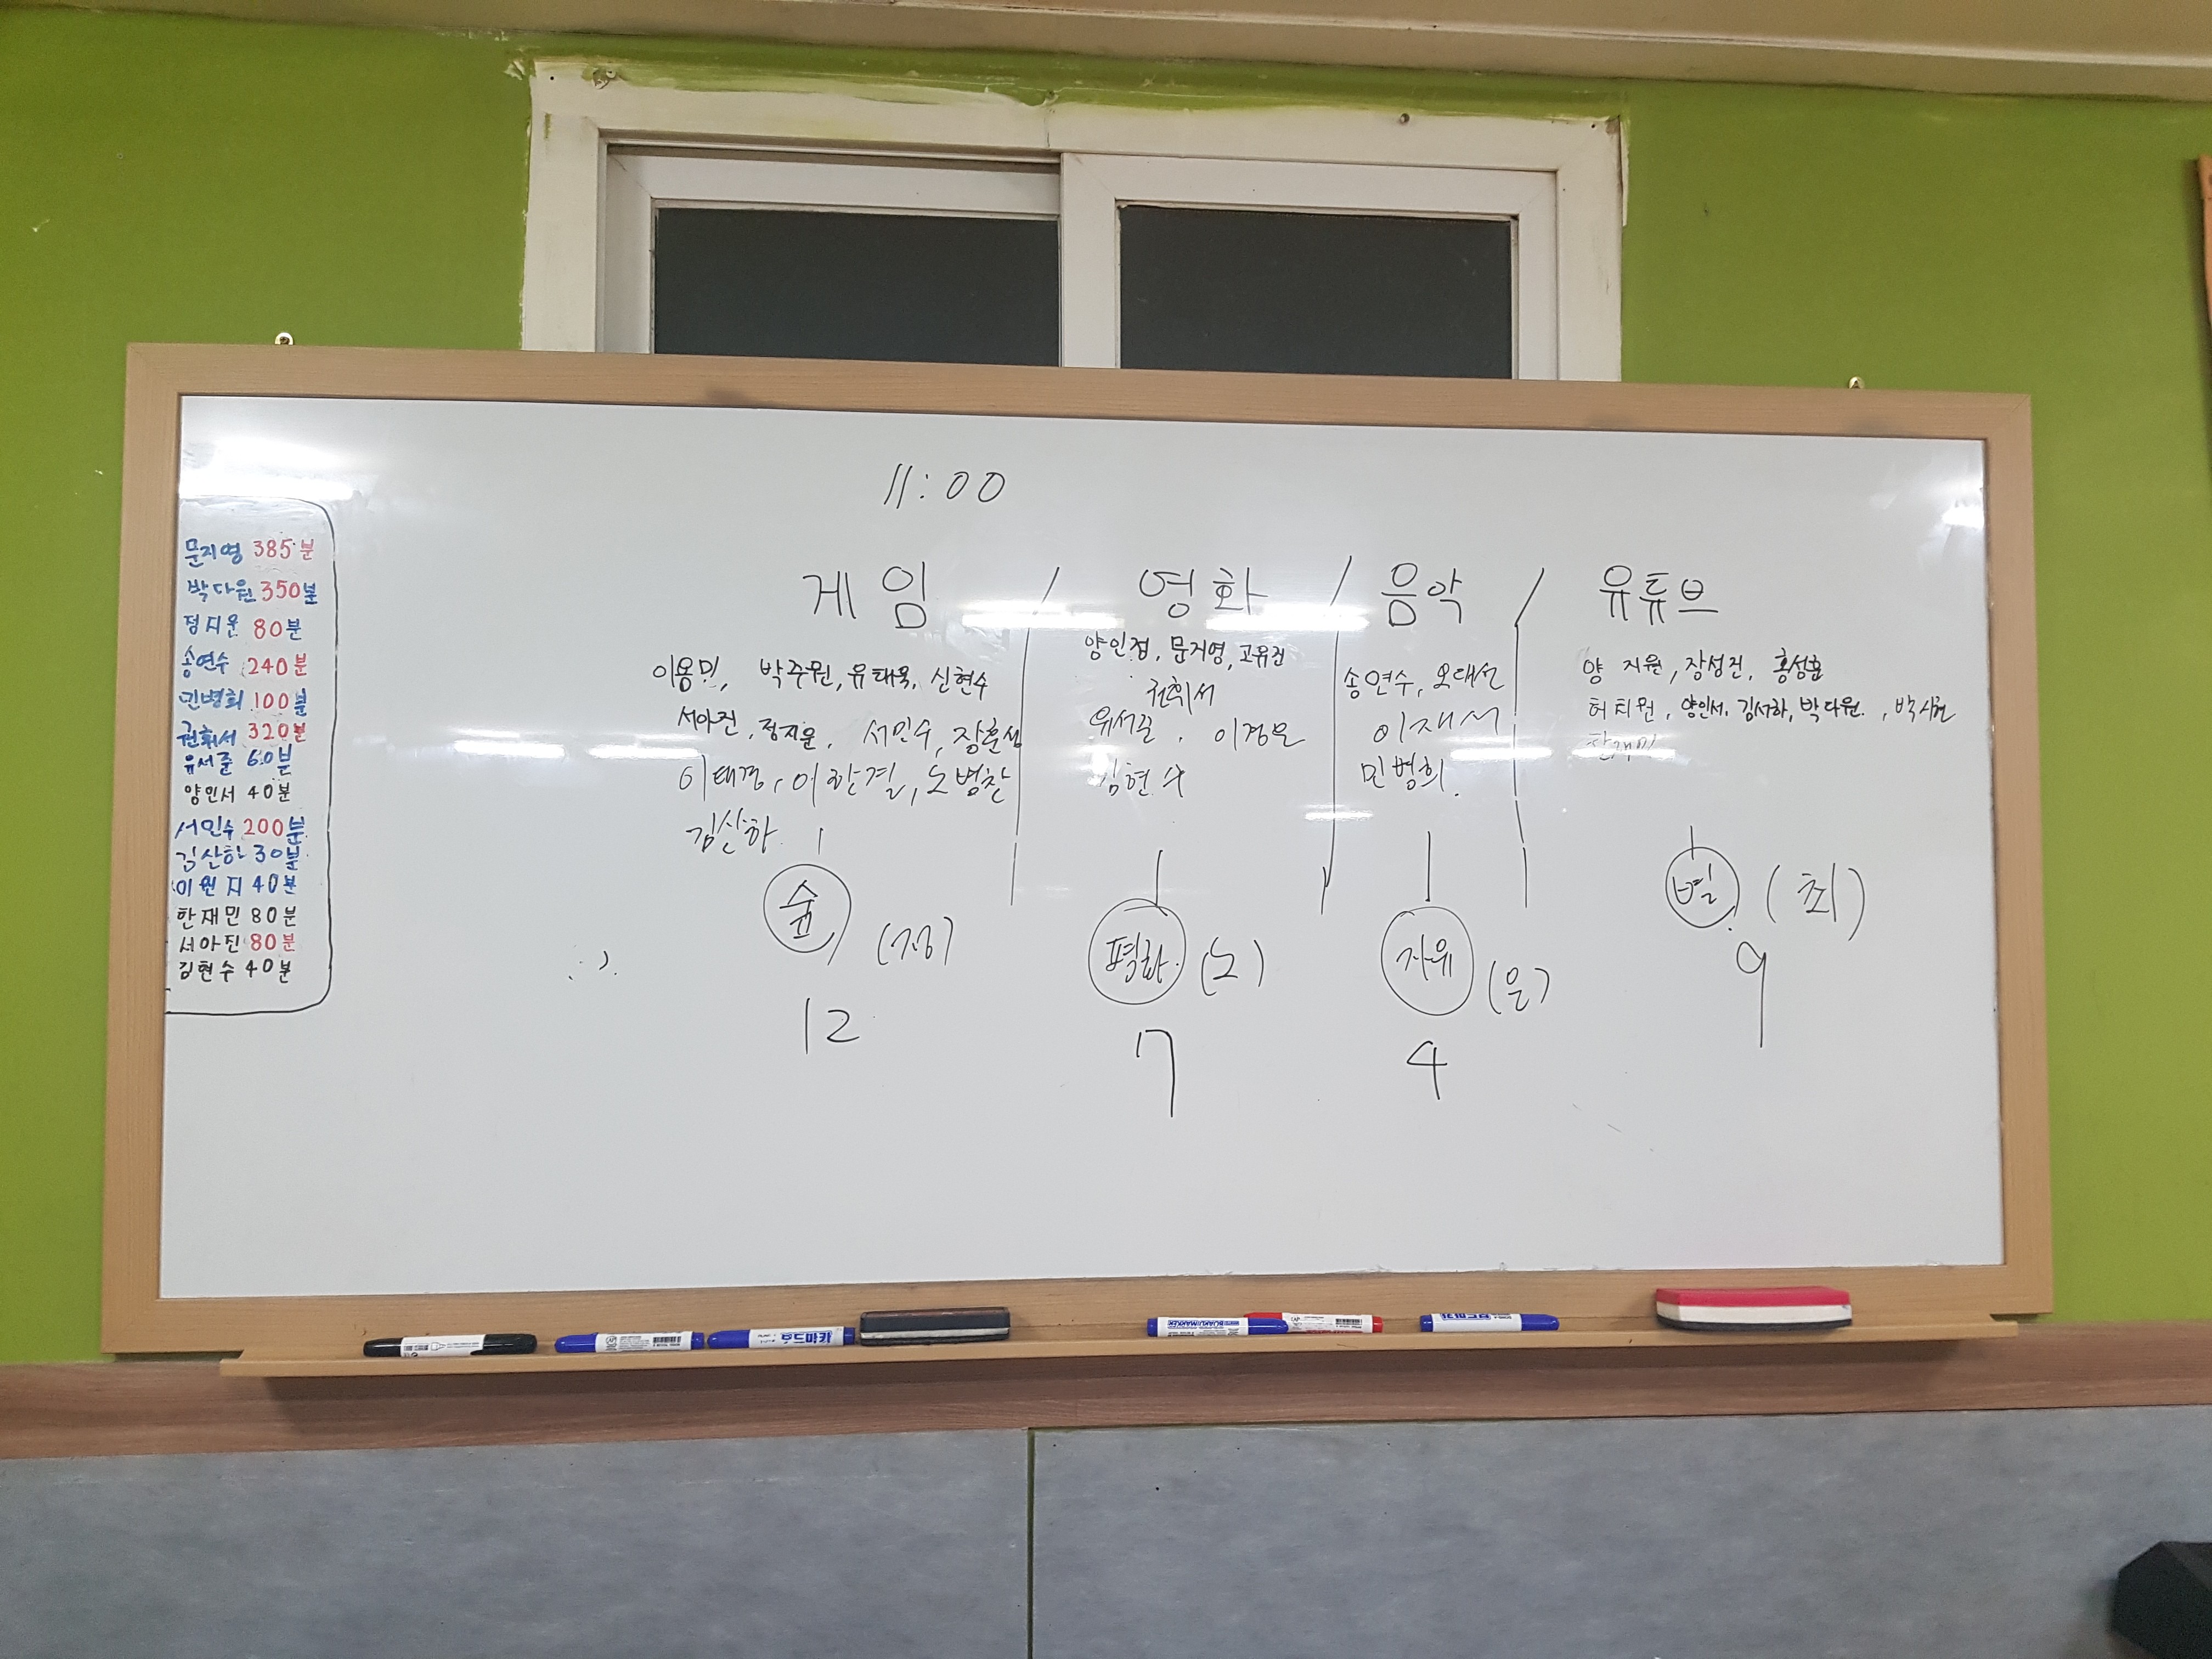 11:00
문지영 385분
박다원 350분
정지윤 80분
송연수 240분
민병희 100분
권휘서 320분
유서준 60분
양인서 40분
서민수 200분
김산하 30분
이원지 40분
한재민 80분
서아진 80분
김현수 40분
게임 / 영화 / 음악 / 유튜브
이용민, 박주원, 유태욱, 신현수
서아진, 정지윤, 서민수, 장훈성
이태경, 이한결, 노병찬
김산하
숲 (정)
12
양인정, 문지영, 고유진
권휘서
유서준, 이경문
김현수
평화 (노)
7
송연수, 오대선
이재서
민병희.
자유 (은)
4
양지원, 장성진, 홍성훈
허지원, 양인서, 김서하, 박다원, 박시현
한재민
별 (최)
9